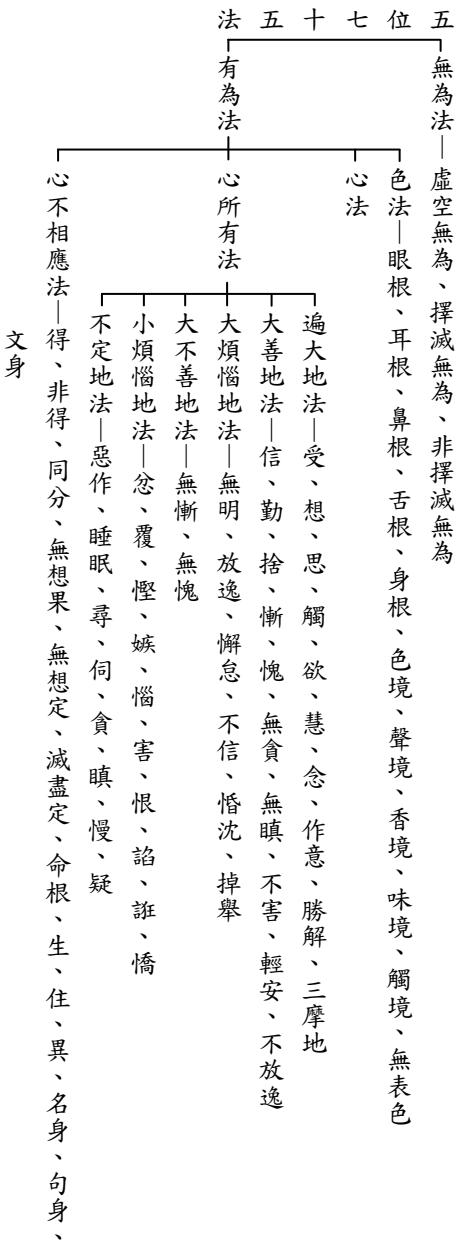 五位七十五法
無為法—虛空無為、擇滅無為、非擇滅無為
有為法
色法—眼根、耳根、鼻根、舌根、身根、色境、聲境、香境、味境、觸境、無表色
心法
心所有法
遍大地法—受、想、思、觸、欲、慧、念、作意、勝解、三摩地
大善地法—信、勤、捨、慚、愧、無貪、無瞋、不害、輕安、不放逸
大煩惱地法—無明、放逸、懈怠、不信、惛沈、掉舉
大不善地法—無慚、無愧
小煩惱地法—忿、覆、慳、嫉、惱、害、恨、諂、誑、憍
不定地法—惡作、睡眠、尋、伺、貪、瞋、慢、疑
心不相應法—得、非得、同分、無想果、無想定、滅盡定、命根、生、住、異、名身、句身、
文身